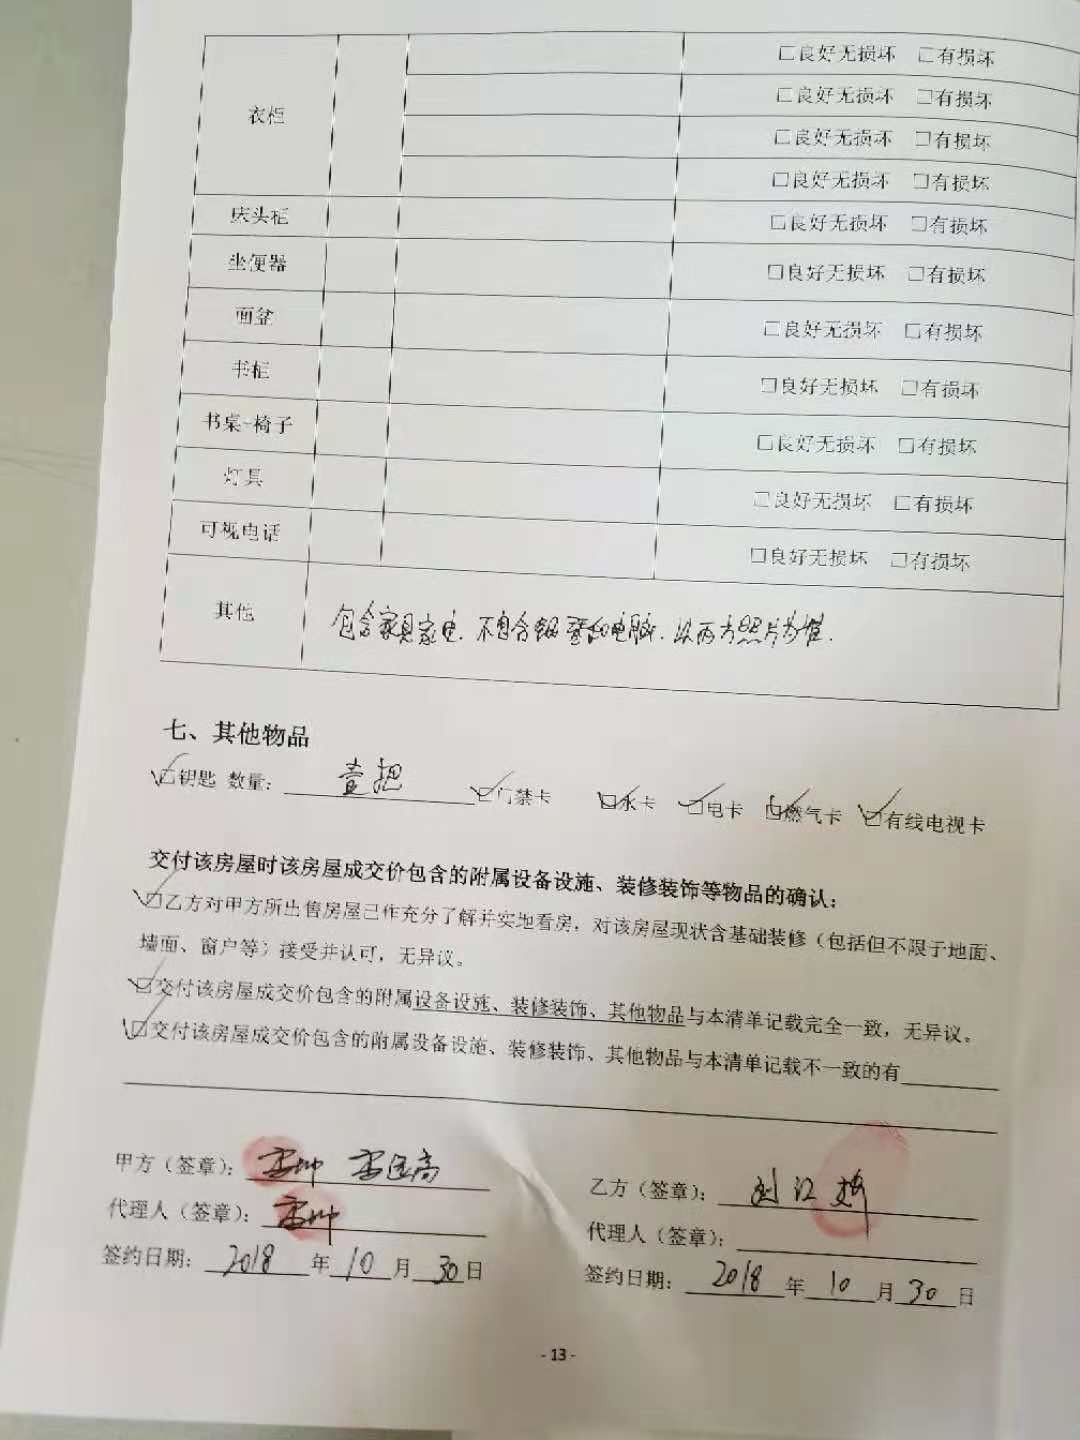 □良好无损坏 □有损坏
□良好无损坏 □有损坏
衣柜
□良好无损坏 □有损坏
□良好无损坏 □有损坏
床头柜 □良好无损坏 □有损坏
坐便器 □良好无损坏 □有损坏
面盆 □良好无损坏 □有损坏
书柜 □良好无损坏 □有损坏
书桌+椅子 □良好无损坏 □有损坏
灯具 □良好无损坏 □有损坏
可视电话 □良好无损坏 □有损坏
其他 包含家具家电.不包含钢琴和电脑.以两方照片为准.
七、其他物品
☑钥匙 数量: 壹把 ☑门禁卡 ☑水卡 ☑电卡 ☑燃气卡 ☑有线电视卡
交付该房屋时该房屋成交价包含的附属设备设施、装修装饰等物品的确认:
☑乙方对甲方所出售房屋已作充分了解并实地看房,对该房屋现状含基础装修(包括但不限于地面、
墙面、窗户等)接受并认可,无异议。
☑交付该房屋成交价包含的附属设备设施、装修装饰、其他物品与本清单记载完全一致,无异议。
☑交付该房屋成交价包含的附属设备设施、装修装饰、其他物品与本清单记载不一致的有
甲方(签章):
乙方(签章): 刘江
代理人(签章):
代理人(签章):
签约日期: 2018 年 10 月 30 日
签约日期: 2018 年 10 月 30 日
- 13 -